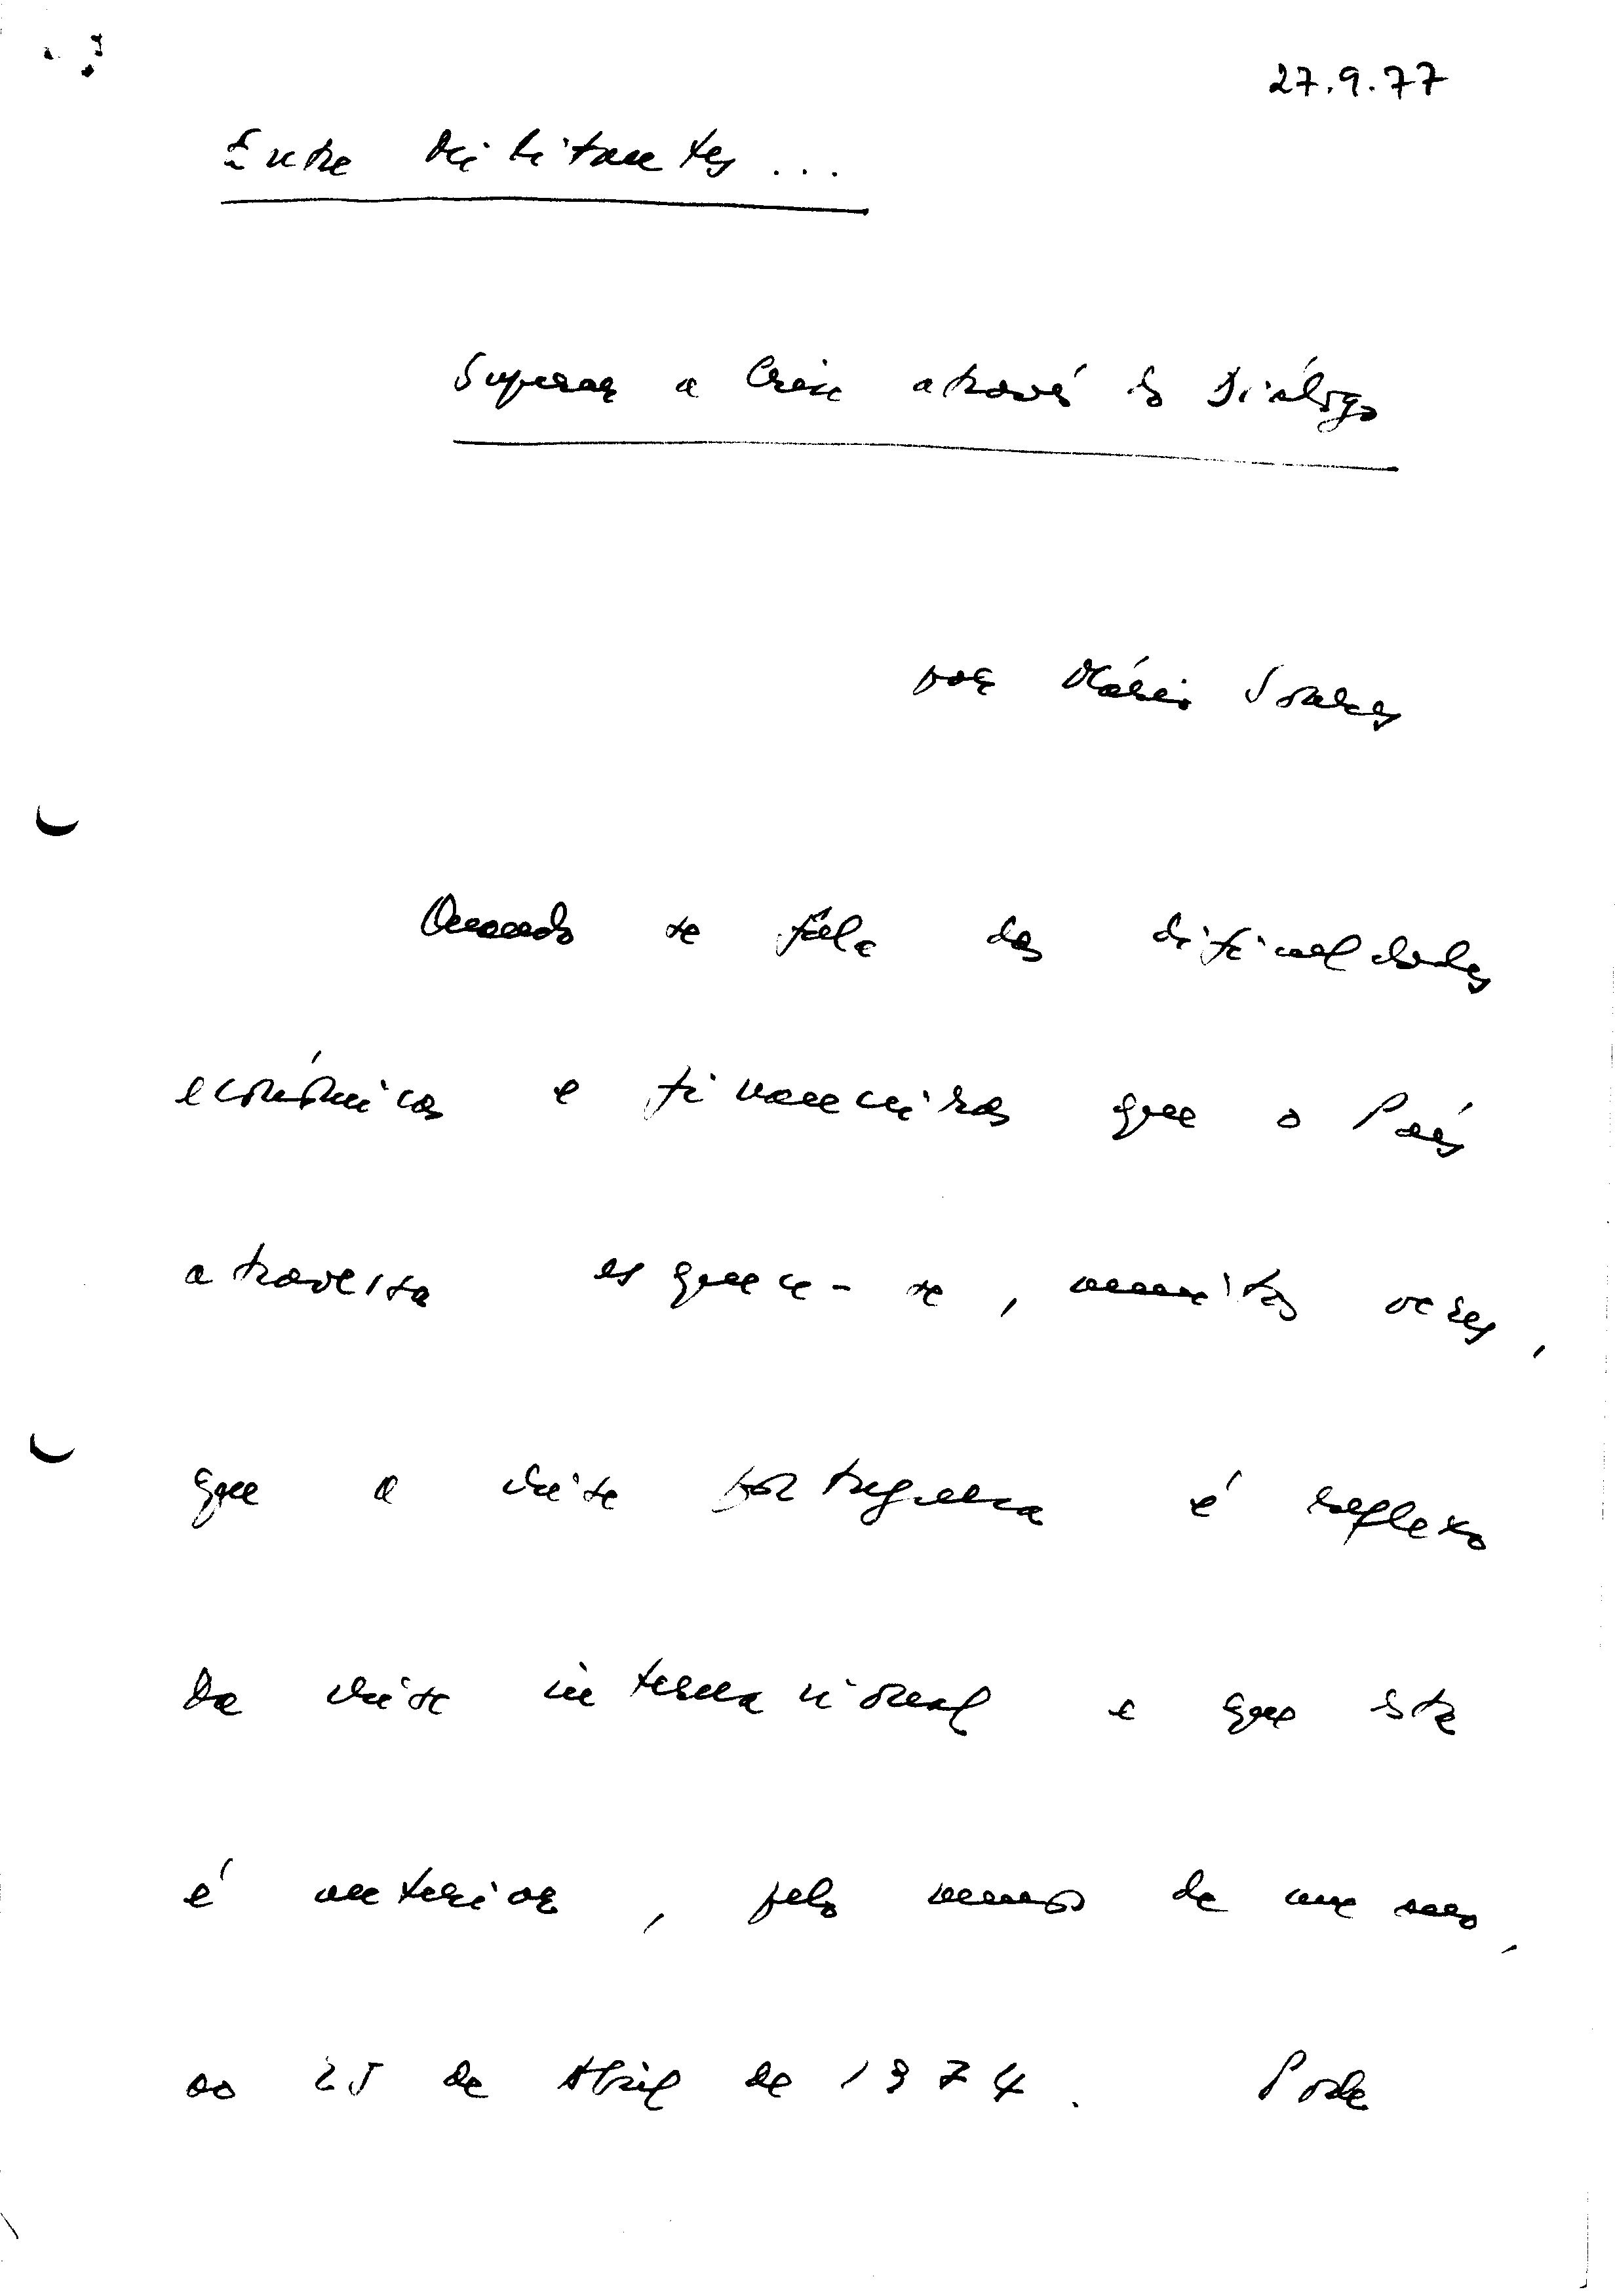 27.9.77
Entre Militantes...
Superar a Crise através do Diálogo
por Mário Soares
Quando se fala das dificuldades
económicas e financeiras que o País
atravessa esquece-se, muitas vezes,
que a crise portuguesa é reflexo
da crise internacional e que esta
é anterior, pelo menos de um ano,
ao 25 de Abril de 1974. Pode